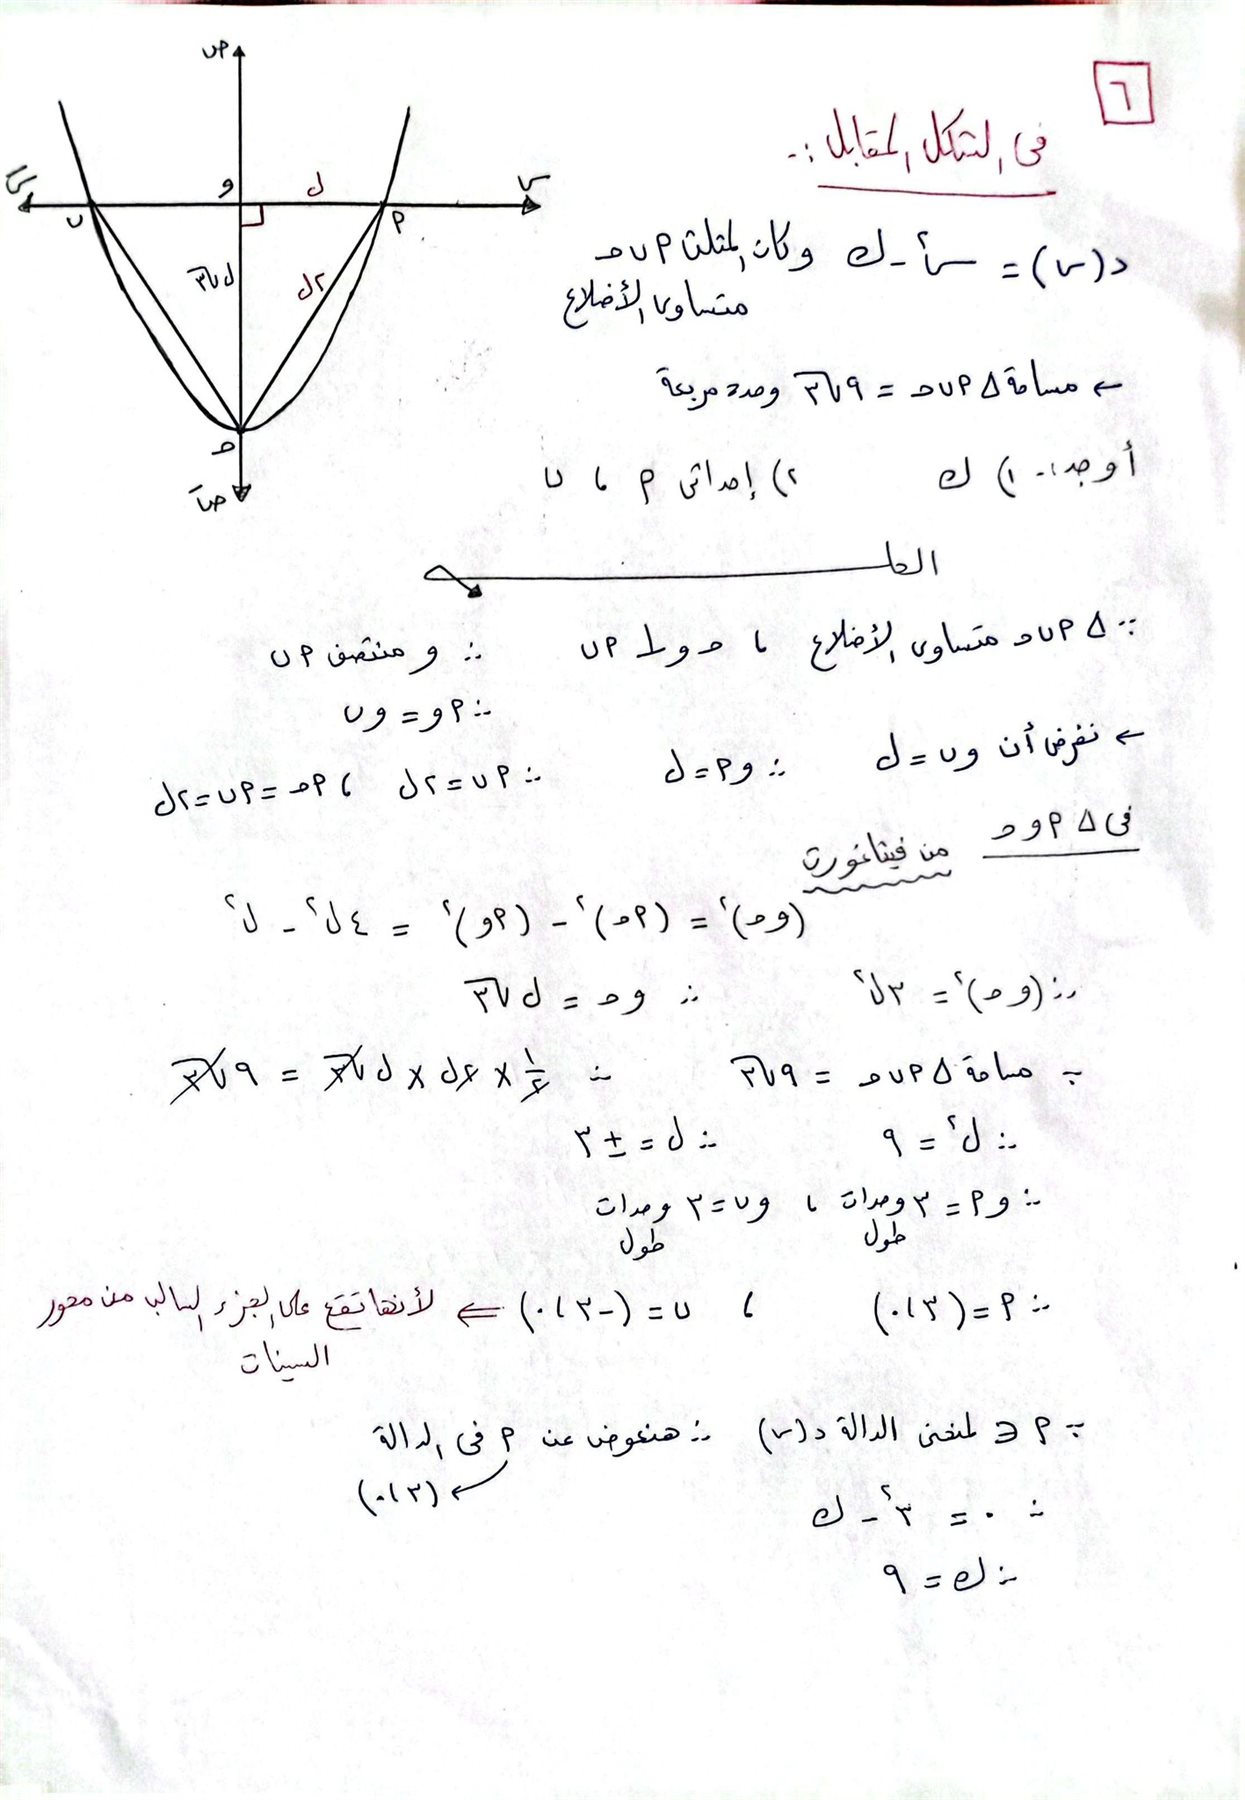 ٦
فى الشكل المقابل :-
د(س) = س٢ - ك وكان المثلث أ ب حـ
متساوى الأضلاع
← مساحة Δ أ ب حـ = ٩√٣ وحدة مربعة
أوجد :- ١) ك ٢) إحداثى أ ، ب
ص
سَ و ل س
ب أ
ل√٣ ٢ل
حـ
صَ
الحل
∵ Δ أ ب حـ متساوى الأضلاع ، حـ و ⊥ أ ب ∴ و منتصف أ ب
∴ أ و = و ب
← نفرض أن و ب = ل ∴ و أ = ل ∴ أ ب = ٢ل ، أ حـ = أ ب = ٢ل
فى Δ أ و حـ من فيثاغورث
(و حـ)٢ = (أ حـ)٢ - (أ و)٢ = ٤ل٢ - ل٢
∴ (و حـ)٢ = ٣ل٢ ∴ و حـ = ل√٣
∵ مساحة Δ أ ب حـ = ٩√٣ ∴ ١/٢ × ٢ل × ل√٣ = ٩√٣
∴ ل٢ = ٩ ∴ ل = ± ٣
∴ و أ = ٣ وحدات طول ، و ب = ٣ وحدات طول
∴ أ = (٣ ، ٠) ، ب = (-٣ ، ٠) ⇐ لأنها تقع على الجزء السالب من محور
السينات
∵ أ ∈ لمنحنى الدالة د(س) ∴ هنعوض عن أ فى الدالة
(٣ ، ٠)
∴ ٠ = ٣٢ - ك
∴ ك = ٩